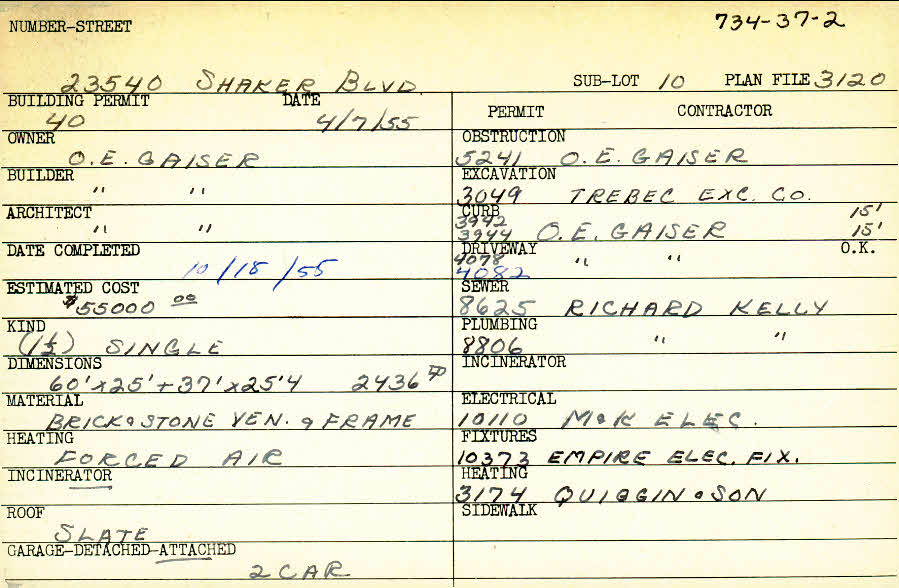 NUMBER-STREET 734-37-2
23540 SHAKER BLVD. SUB-LOT 10 PLAN FILE 3120
BUILDING PERMIT DATE
40 4/7/55
PERMIT CONTRACTOR
OWNER
O.E. GAISER
OBSTRUCTION
5241 O.E. GAISER
BUILDER
" "
EXCAVATION
3049 TREBEC EXC. CO.
ARCHITECT
" "
CURB 15'
3942
3944 O.E. GAISER 15'
DATE COMPLETED
10/18/55
DRIVEWAY O.K.
4078 " "
4082
ESTIMATED COST
$55000 00
SEWER
8625 RICHARD KELLY
KIND
(1½) SINGLE
PLUMBING
8806 " "
DIMENSIONS
60'x25'+37'x25'4 2436
INCINERATOR
MATERIAL
BRICK & STONE VEN. & FRAME
ELECTRICAL
10110 M&K ELEC.
HEATING
FORCED AIR
FIXTURES
10373 EMPIRE ELEC. FIX.
INCINERATOR
HEATING
3174 QUIGGIN & SON
ROOF
SLATE
SIDEWALK
GARAGE-DETACHED-ATTACHED
2 CAR